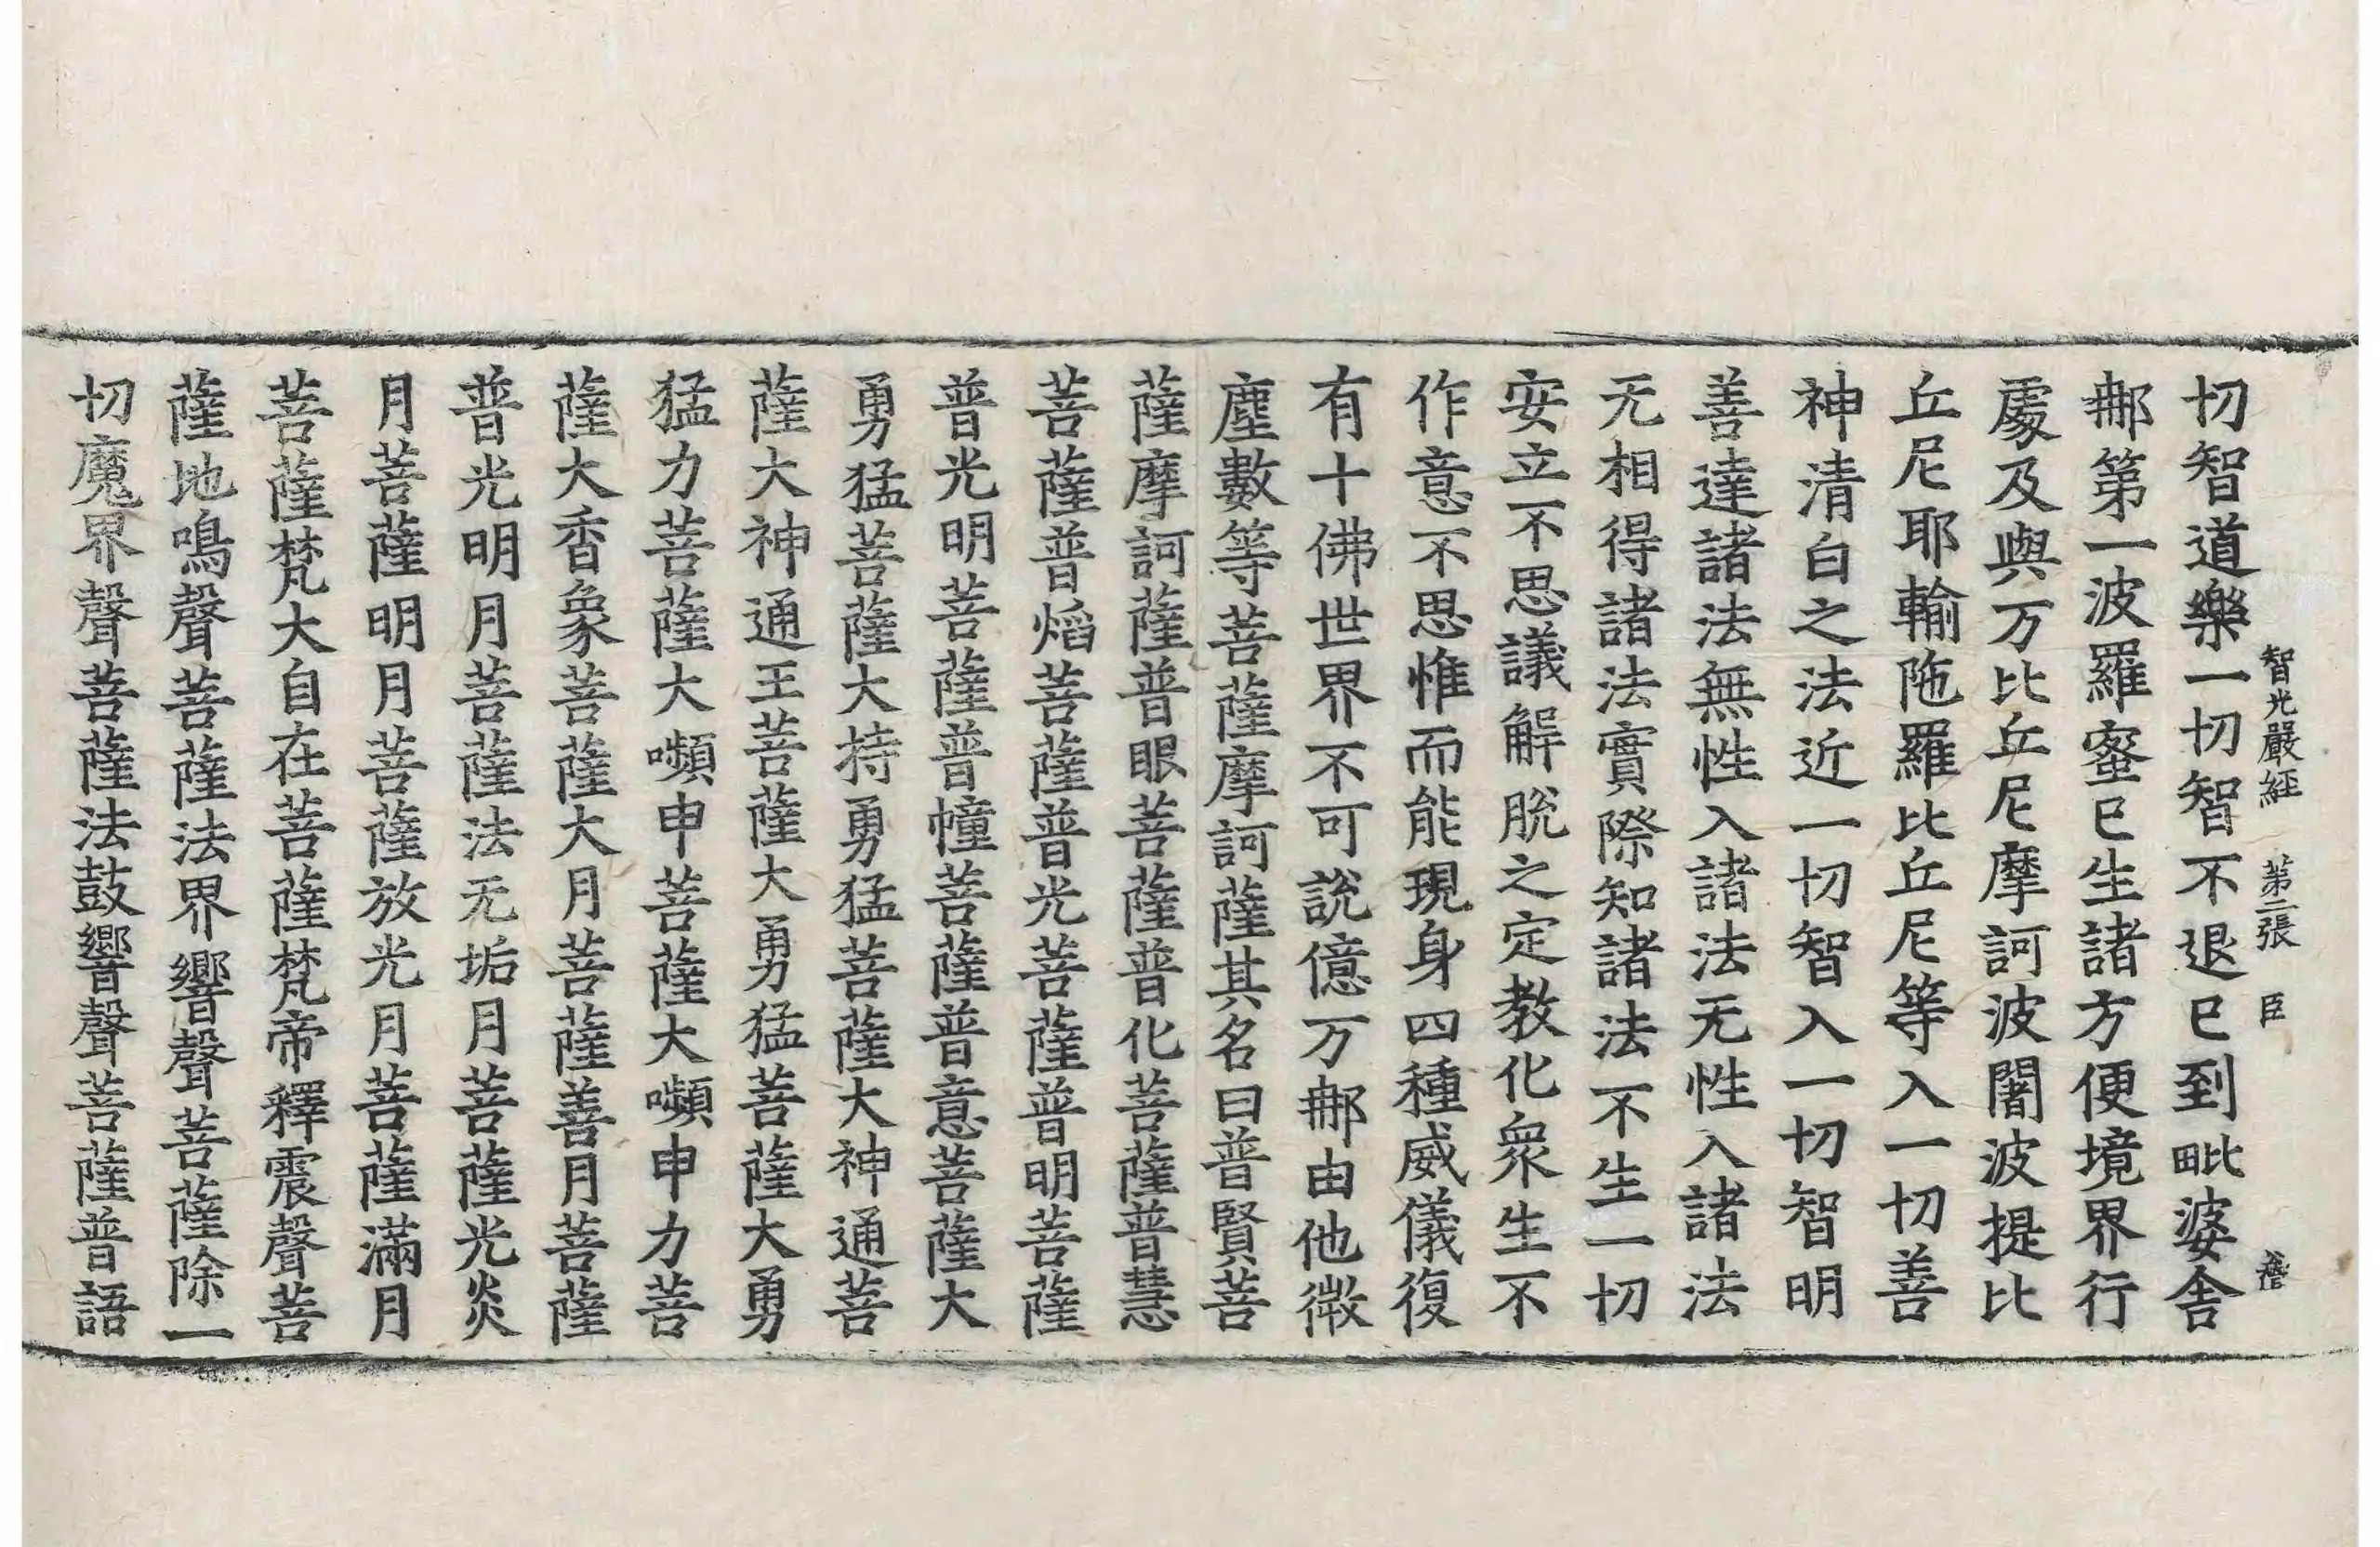 智光嚴経 第二張 臣
切智道樂一切智不退已到毗婆舍
那第一波羅蜜已生諸方便境界行
處及與万比丘尼摩訶波闍波提比
丘尼耶輸陁羅比丘尼等入一切善
神清白之法近一切智入一切智明
善達諸法無性入諸法无性入諸法
无相得諸法實際知諸法不生一切
安立不思議解脫之定教化衆生不
作意不思惟而能現身四種威儀復
有十佛世界不可說億万那由他微
塵數等菩薩摩訶薩其名曰普賢菩
薩摩訶薩普眼菩薩普化菩薩普慧
菩薩普焰菩薩普光菩薩普明菩薩
普光明菩薩普幢菩薩普意菩薩大
勇猛菩薩大持勇猛菩薩大神通菩
薩大神通王菩薩大勇猛菩薩大勇
猛力菩薩大嚬申菩薩大嚬申力菩
薩大香象菩薩大月菩薩善月菩薩
普光明月菩薩法无垢月菩薩光炎
月菩薩明月菩薩放光月菩薩滿月
菩薩梵大自在菩薩梵帝釋震聲菩
薩地鳴聲菩薩法界響聲菩薩除一
切魔界聲菩薩法鼓響聲菩薩普語